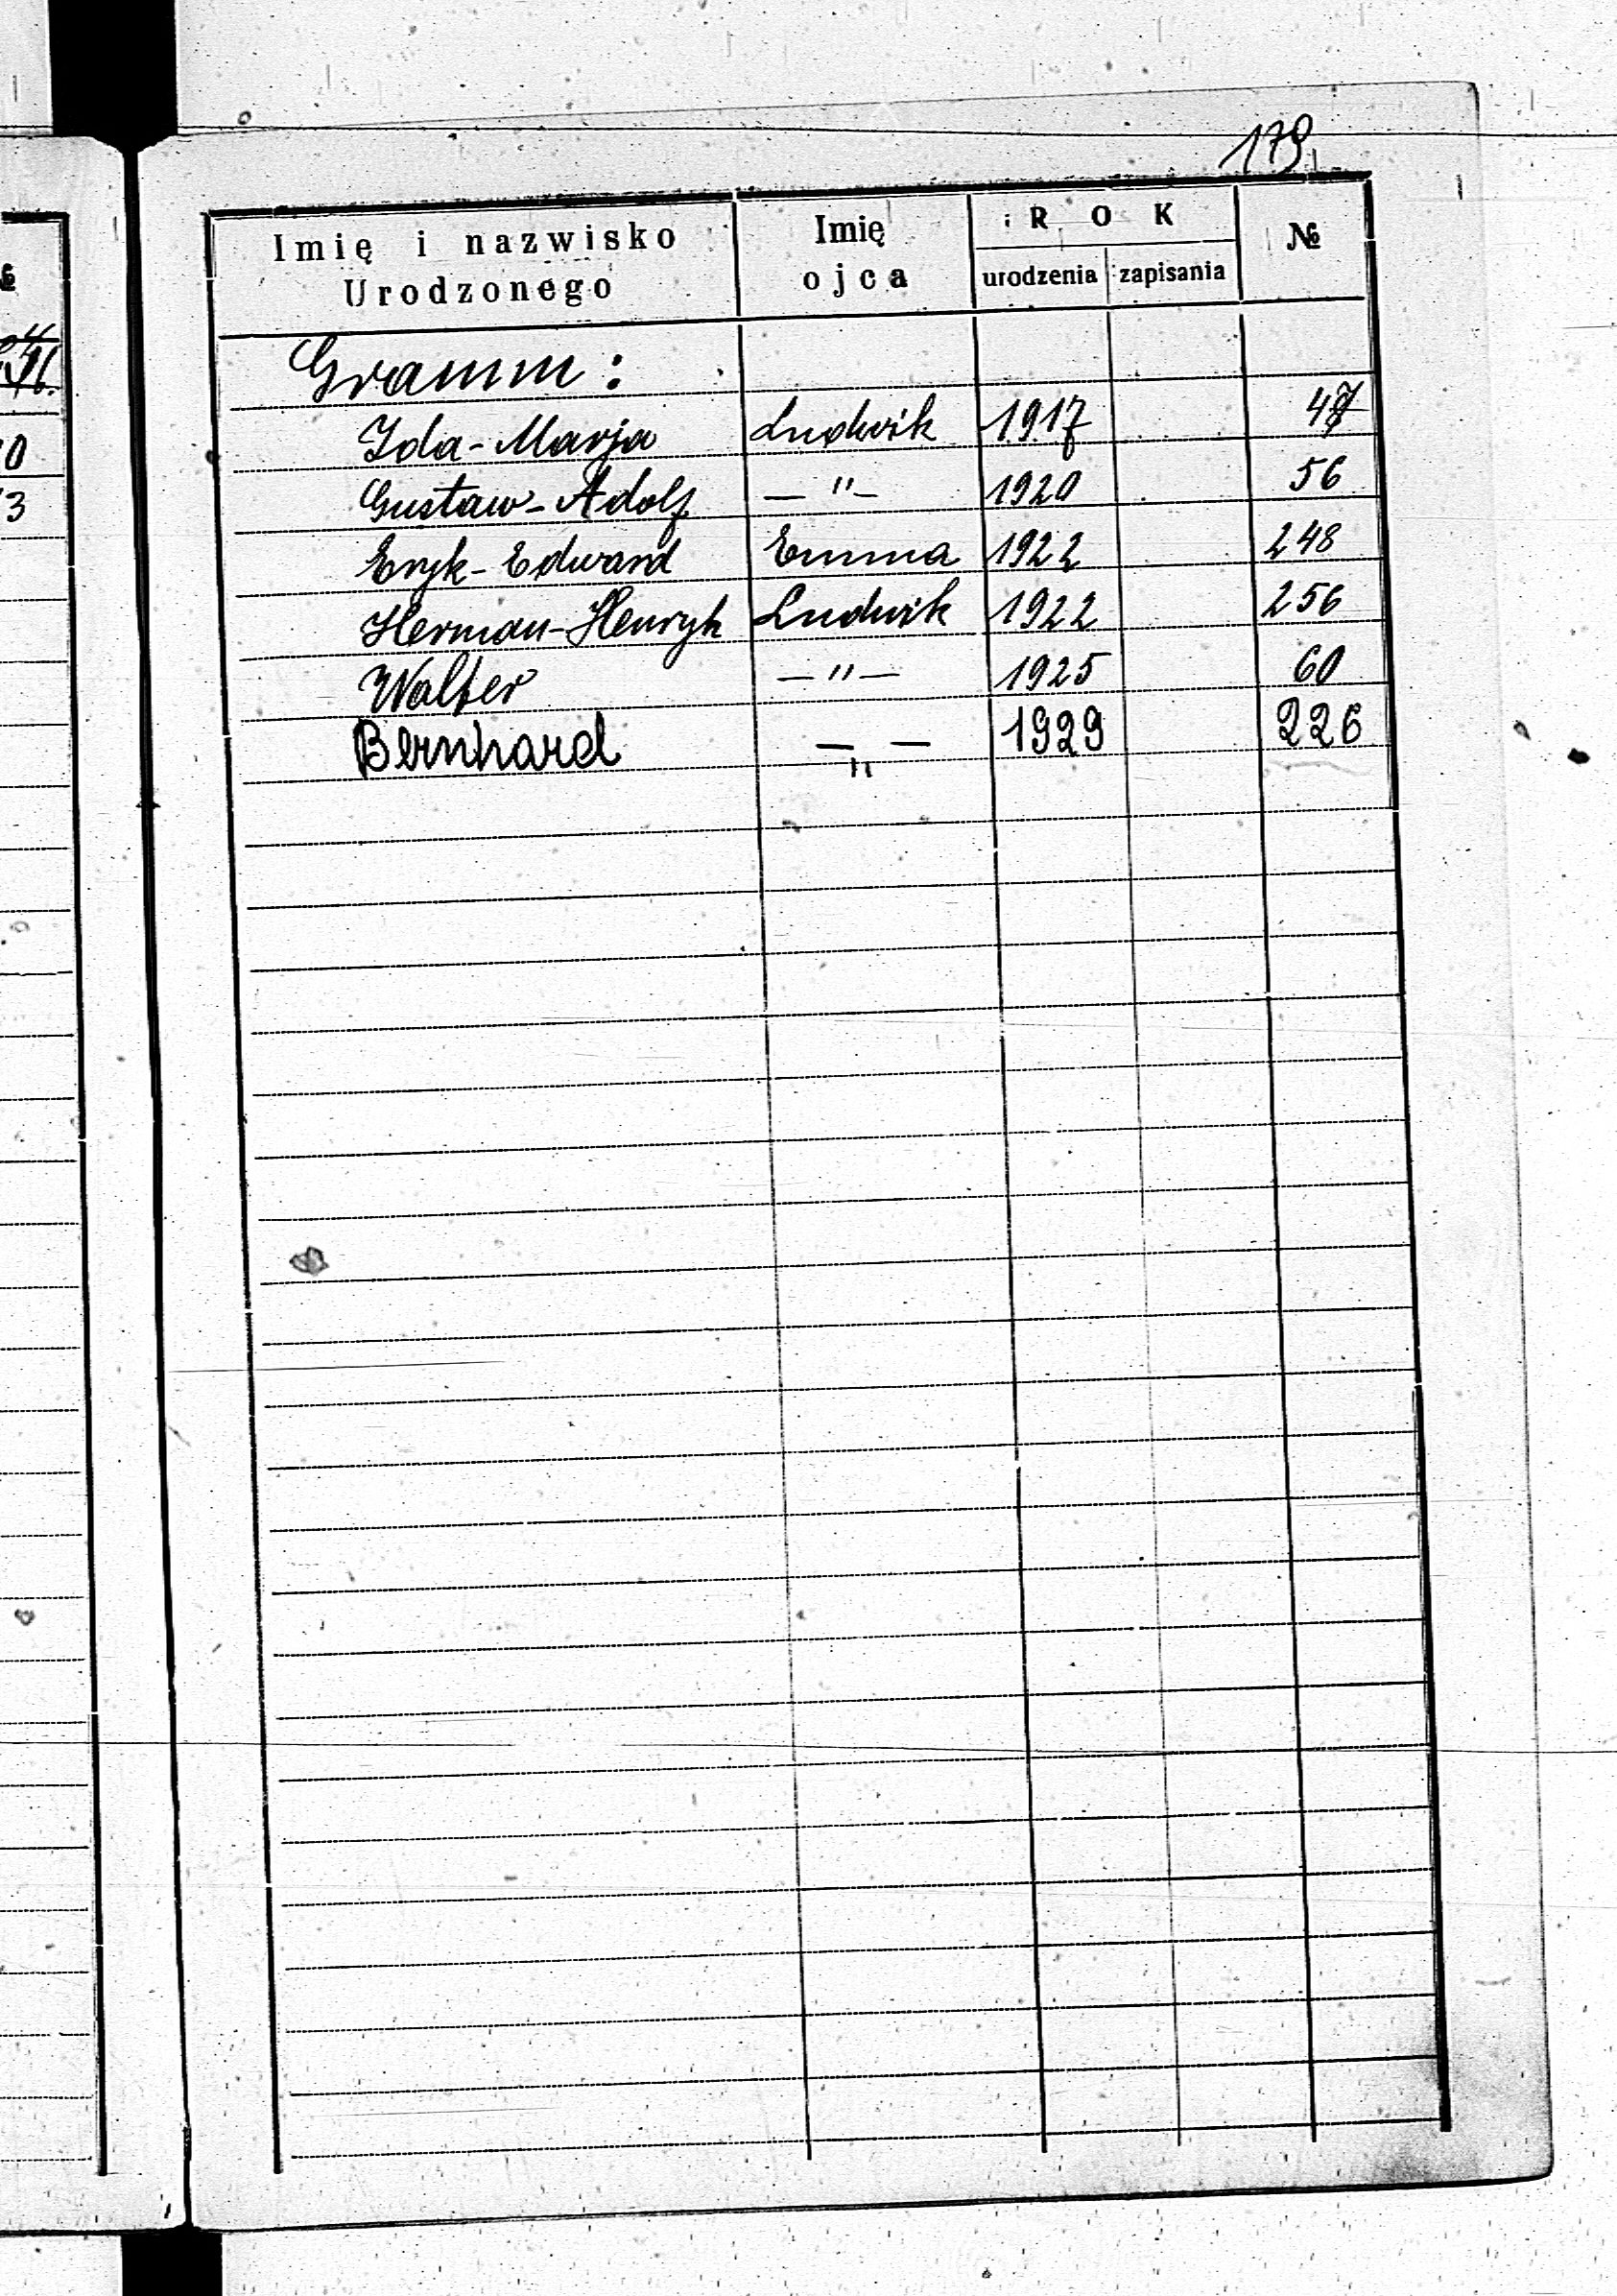 179
Imię i nazwisko Urodzonego
Imię ojca
ROK
urodzenia
zapisania
№
Gramm:
Ida-Marja Ludwik 1917 47
Gustaw-Adolf — " — 1920 56
Eryk-Edward Emma 1922 248
Herman-Henryk Ludwik 1922 256
Walter — " — 1925 60
Bernhard — " — 1929 226